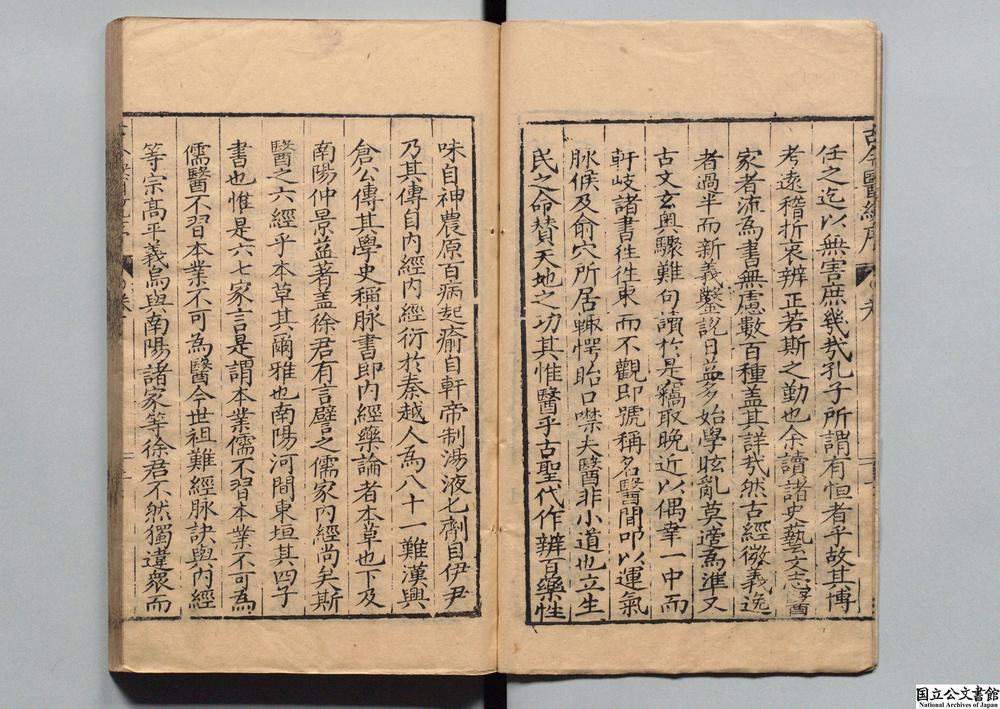 古今醫統序
任之迄以無害庶幾㢤孔子所謂有恒者乎故其博
考遠稽折衷辨正若斯之勤也余讀諸史藝文志醫
家者流為書無慮數百種盖其詳㢤然古經微義逸
者過半而新義鑿說日益多始學眩亂莫適為準又
古文玄奥驟難句讀於是竊取晚近以偶幸一中而
軒岐諸書徃徃束而不觀即號稱名醫間叩以運氣
脉候及俞穴所居輙愕眙口噤夫醫非小道也立生
民之命賛天地之功其惟醫乎古聖代作辨百藥性
味自神農原百病起瘉自軒帝制湯液七劑自伊尹
乃其傳自内經内經衍於秦越人為八十一難漢興
倉公傳其學史稱脉書即内經藥論者本草也下及
南陽仲景益著盖徐君有言譬之儒家内經尚矣斯
醫之六經乎本草其爾雅也南陽河間東垣其四子
書也惟是六七家言是謂本業儒不習本業不可為
儒醫不習本業不可為醫今世祖難經脉訣與内經
等宗高平義烏與南陽諸家等徐君不然獨違衆而
国立公文書館
National Archives of Japan